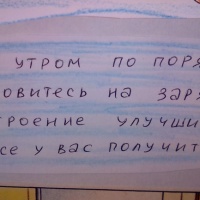 УТРОМ ПО ПОРЯ
ОВИТЕСЬ НА ЗАРЯ
РОЕНИЕ УЛУЧШИ
СЕ У ВАС ПОЛУЧИТ